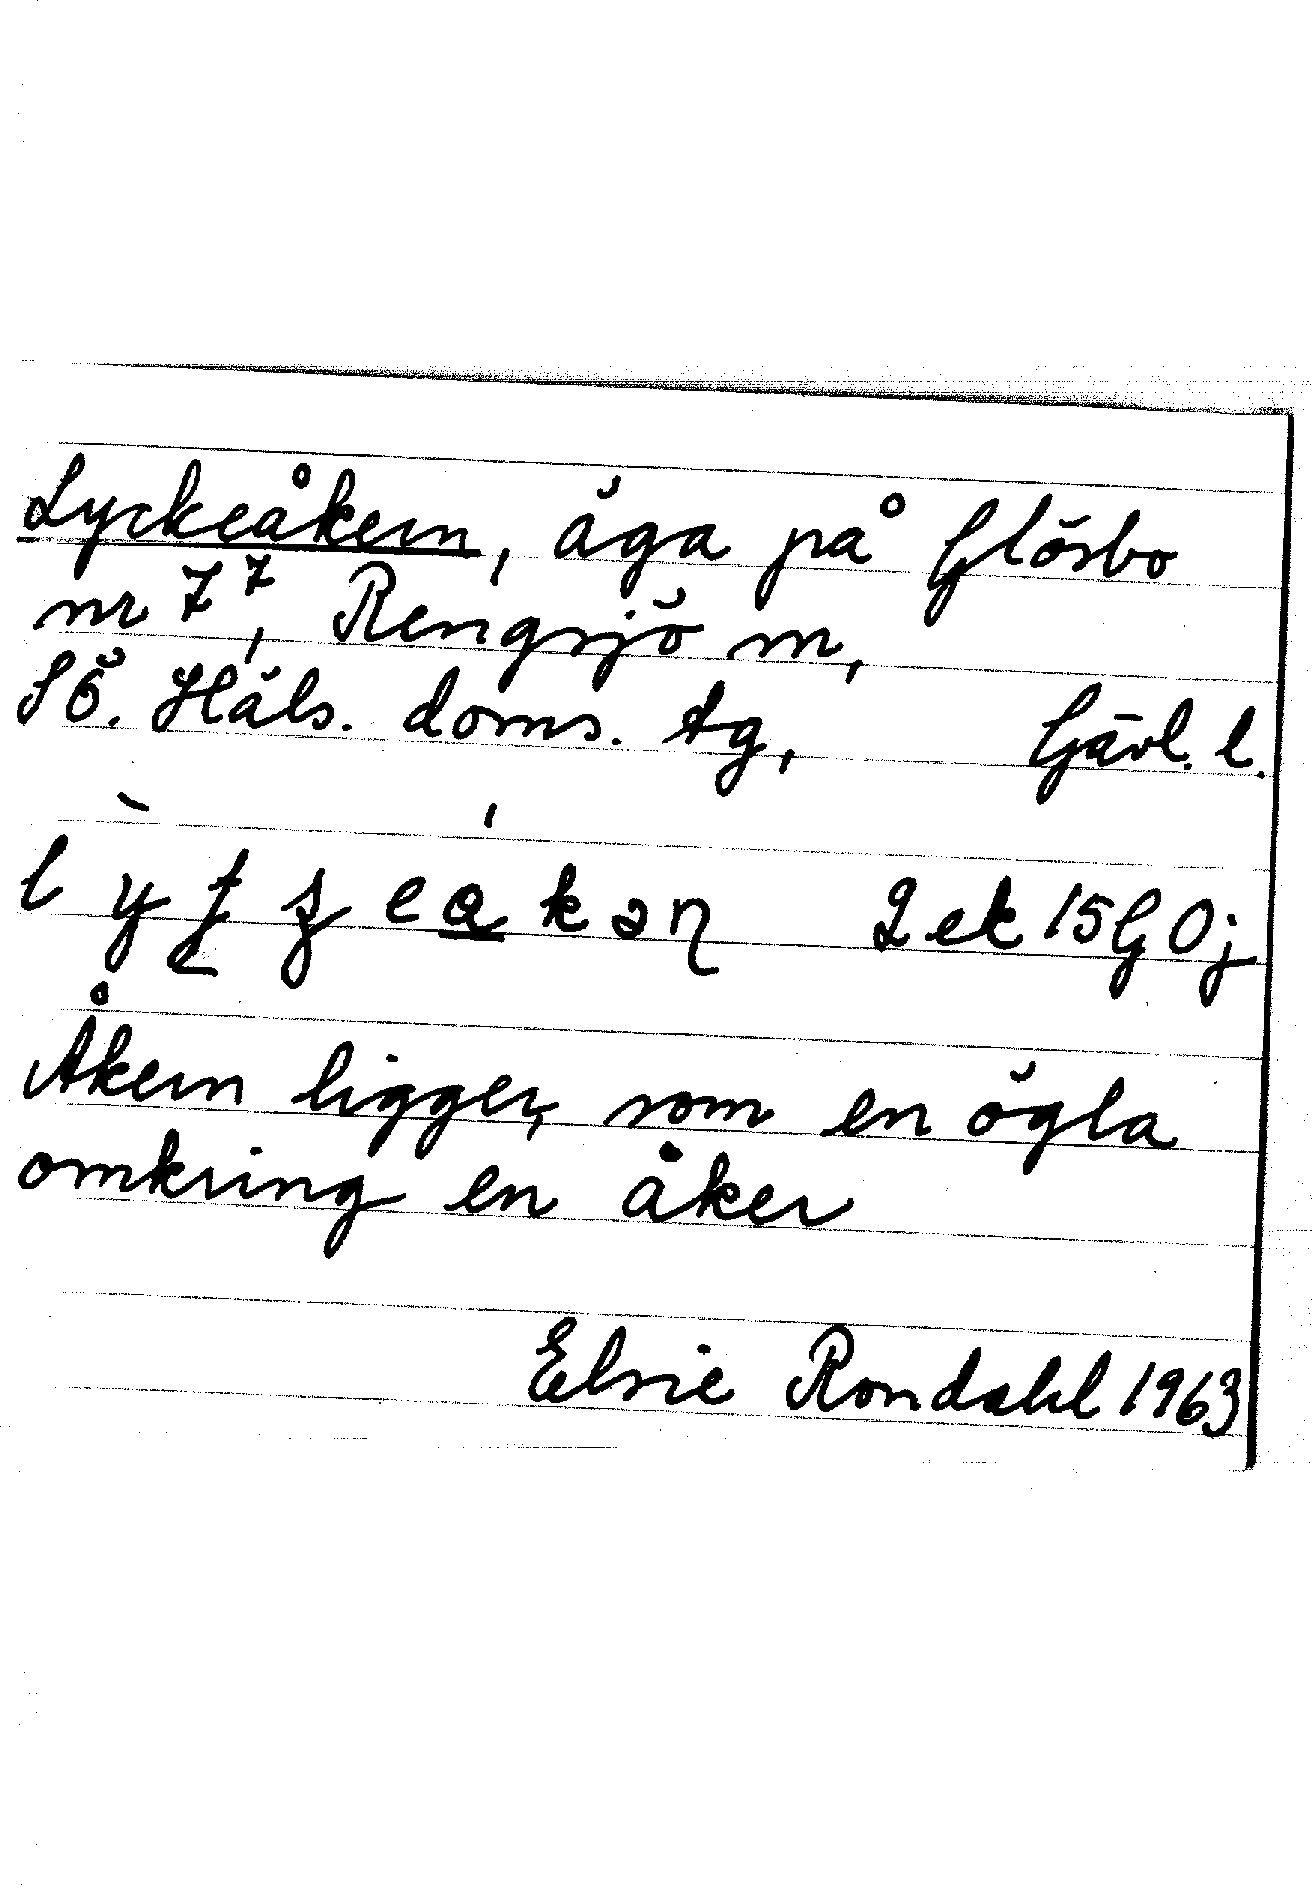 Lyckeåkern, äga på Glösbo
nr 7⁷, Rengsjö sn,
SÖ. Häls. doms. tg, Gävl. l.
Ek 15G 0j
Åkern ligger, som en ögla
omkring en åker
Elsie Rondahl 1963